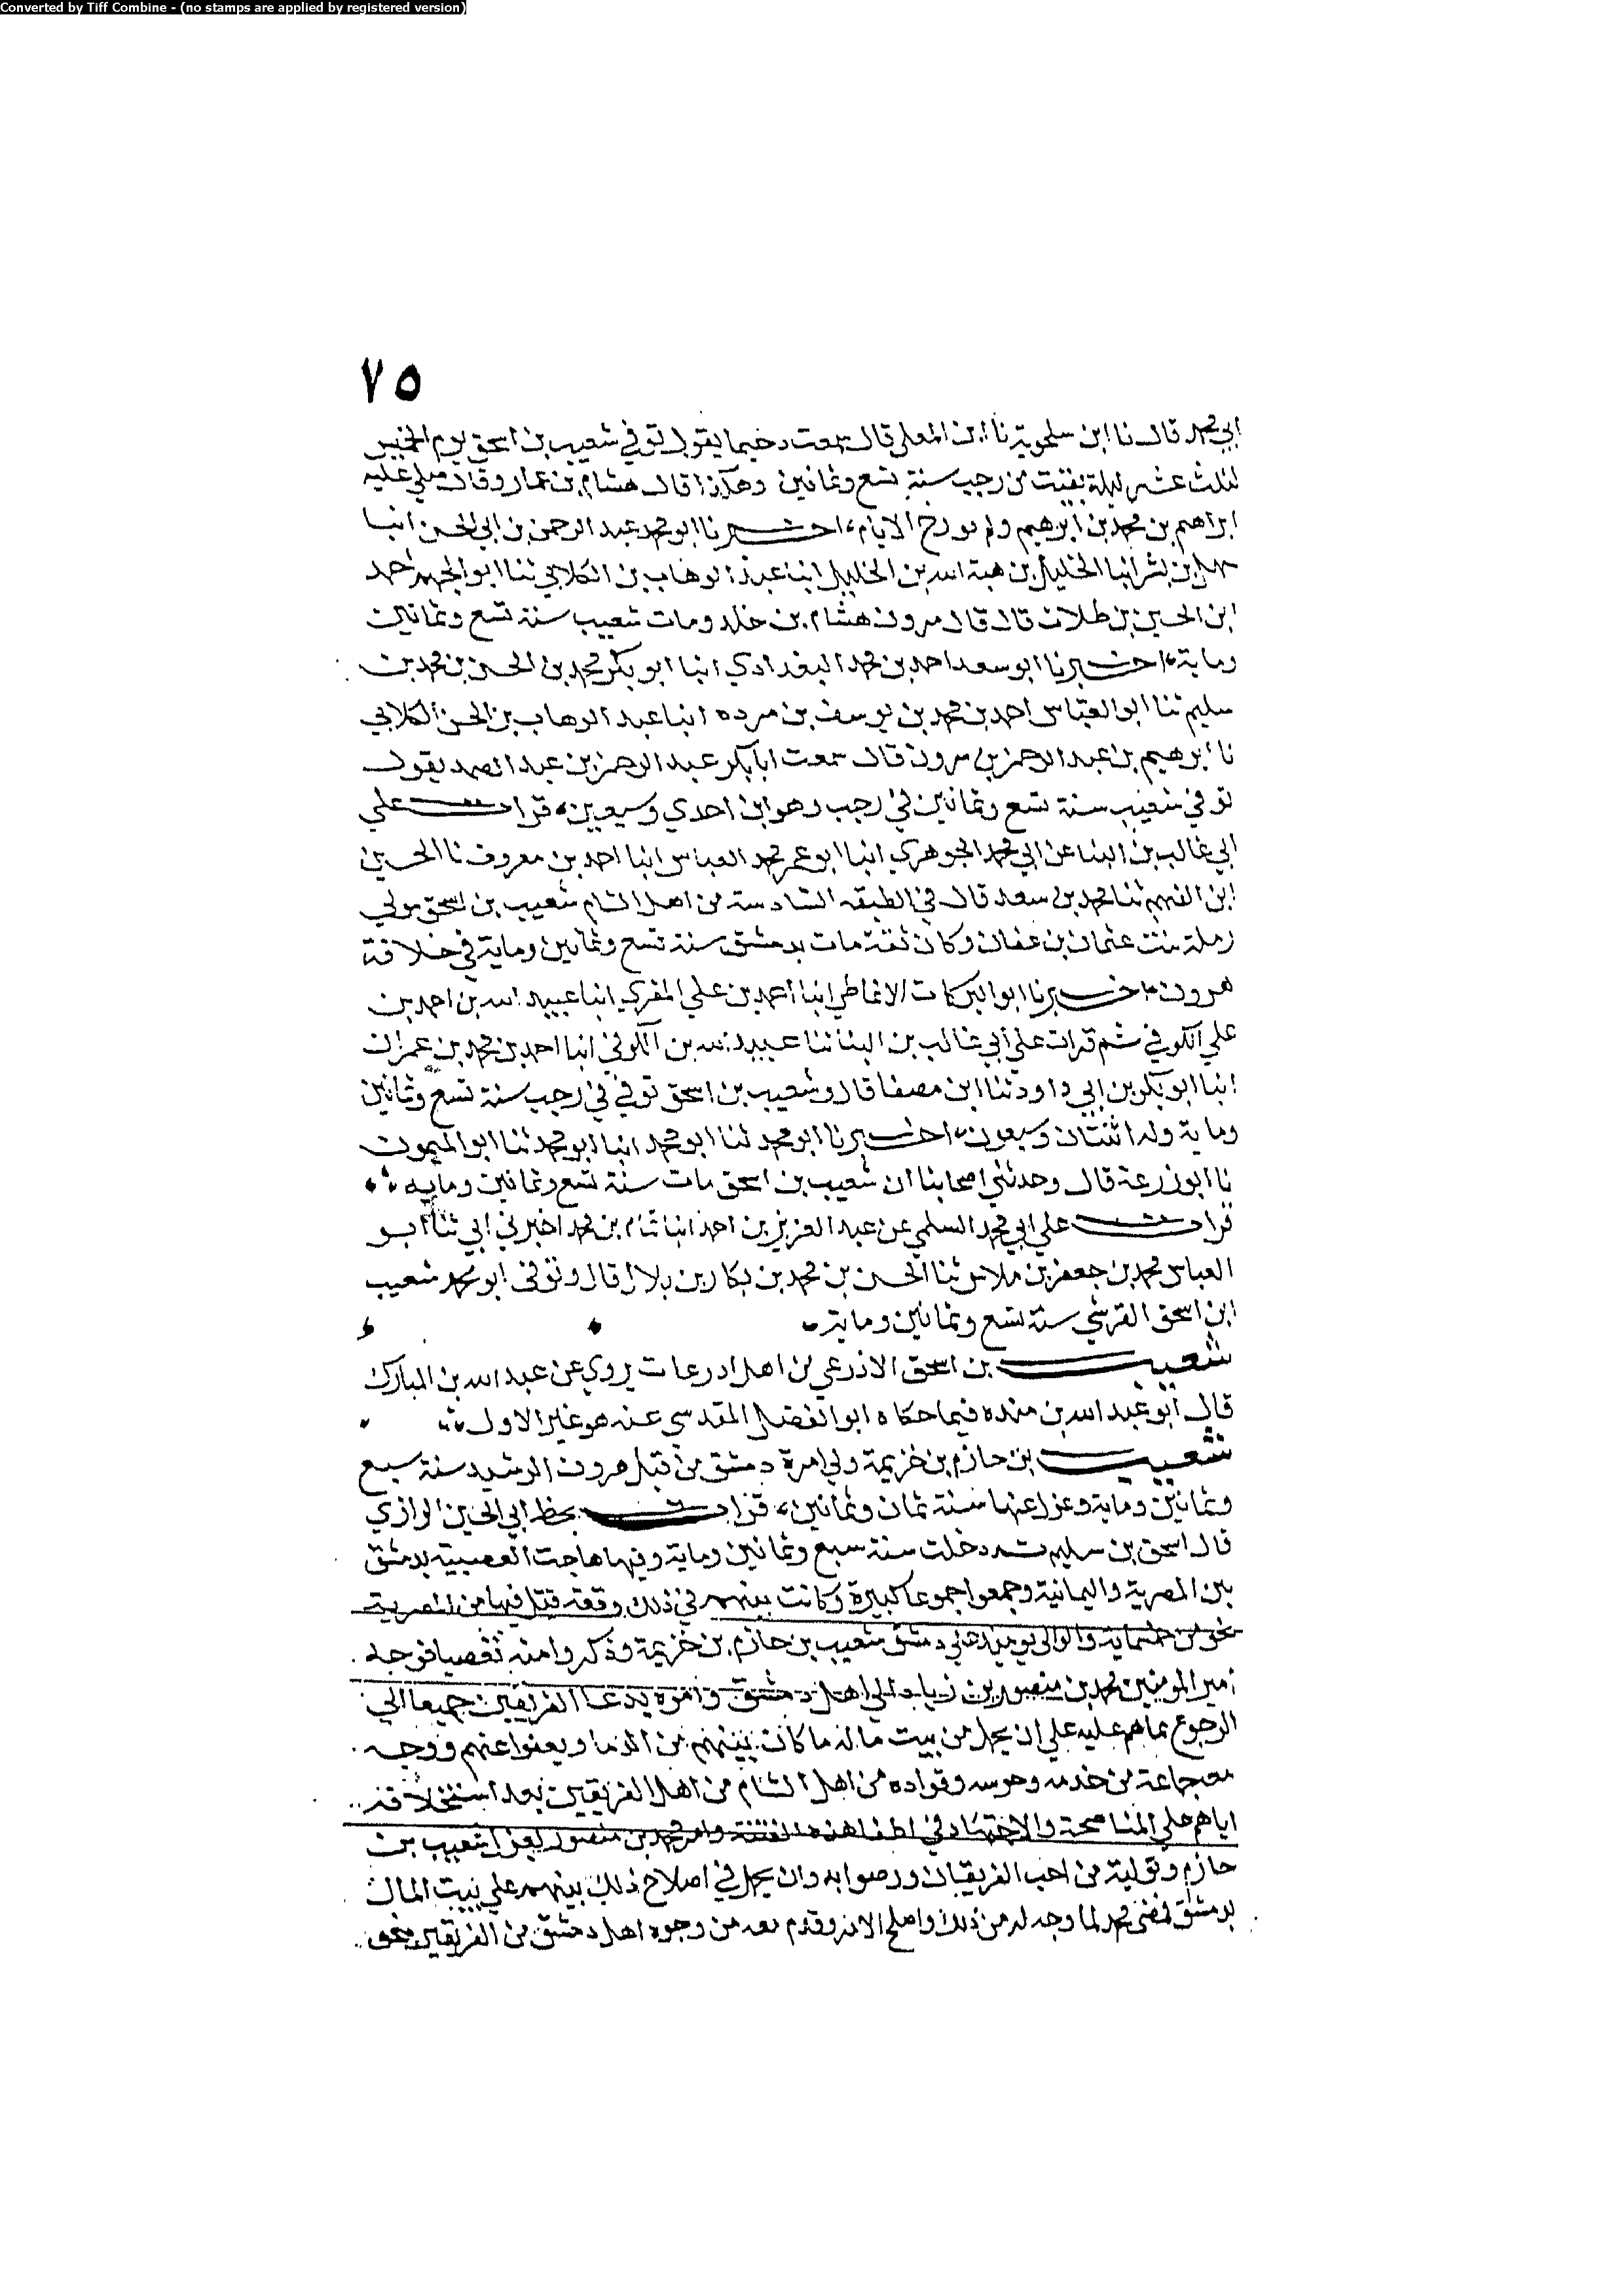 Converted by Tiff Combine - (no stamps are applied by registered version)
٧٥
ابي محمد قال نا ابن سلموية نا ابن المعلى قال سمعت دحيما يقول توفي شعيب بن اسحق يوم الخميس
لثلث عشر ليلة بقيت من رجب سنة تسع وثمانين وهكذا قال هشام بن عمار وقال صلي عليه
ابراهيم بن محمد بن ابرهيم ولم يورخ الايام اخبرنا ابو محمد عبد الرحمن بن ابي الحسن انبا
سهل بن بشر انبا الخليل بن هبة الله بن الخليل انبا عبد الوهاب بن الكلابي ثنا ابو الجهم احمد
ابن الحسين بن طلاب قال قال مرون هشام بن خلد ومات شعيب سنة تسع وثمانين
وماية اخبرنا ابو سعد احمد بن محمد البغدادي انبا ابو بكر محمد بن الحسن بن محمد بن
سليم ثنا ابو العباس احمد بن محمد بن يوسف بن مرده انبا عبد الوهاب بن الحسن الكلابي
نا ابرهيم بن عبد الرحمن بن مرون قال سمعت ابا بكر عبد الرحمن بن عبد الصمد يقول
توفي شعيب سنة تسع وثمانين في رجب وهو ابن احدي وسبعين قرات علي
ابي غالب بن البنا عن ابي محمد الجوهري انبا ابو عمر محمد العباس انبا احمد بن معروف نا الحسين
ابن الفهم ثنا محمد بن سعد قال في الطبقه السادسة من اهل الشام شعيب بن اسحق مولي
رملة بنت عثمان بن عفان وكان ثقة مات بدمشق سنة تسع وثمانين وماية في خلافة
هرون اخبرنا ابو البركات الانماطي انبا احمد بن علي المقري انبا عبيد الله بن احمد بن
علي الكوفي ثم قرات علي ابي غالب بن البنا ثنا عبيد الله بن الكوفي انبا احمد بن محمد بن عمران
انبا ابو بكر بن ابي داود ثنا ابن مصفا قال وشعيب بن اسحق توفي في رجب سنة تسع وثمانين
وماية وله اثنتان وسبعون اخبرنا ابو محمد ثنا ابو محمد انبا ابو محمد ثنا ابو الميمون
نا ابو زرعة قال وحدثني اصحابنا ان شعيب بن اسحق مات سنة تسع وثمانين ومايه
قرات علي ابي محمد السلمي عن عبد العزيز بن احمد انبا تمام بن محمد اخبرني ابي ثنا ابو
العباس محمد بن جعفر بن ملاس ثنا الحسن بن محمد بن بكار بن بلال قال وتوفي ابو محمد شعيب
ابن اسحق القرشي سنة تسع وثمانين وماية
شعيب بن اسحق الاذرعي من اهل اذرعات يروي عن عبد الله بن المبارك
قال ابو عبد الله بن منده فيما حكاه ابو الفضل المقدسي عنه هو غير الاول
شعيب بن حازم بن خزيمة ولي امرة دمشق من قبل هرون الرشيد سنة سبع
وثمانين وماية وعزل عنها سنة ثمان وثمانين قرات بخط ابي الحسين الرازي
قال اسحق بن سليم دخلت سنة سبع وثمانين وماية وفيها هاجت العصبية بدمشق
بين المصرية واليمانية وجمعوا جموعا كبيرة وكانت بينهم في ذلك وقعة قتل فيها من المصرية
نحو من خمسماية والوالي يوميذ علي دمشق شعيب بن حازم بن خزيمة وذكروا منه تقصيا فوجه
امير المومنين محمد بن منصور بن زياد الي اهل دمشق وامره يدعا الفريقين جميعا الي
الرجوع عما هم عليه علي ان يحمل من بيت ماله ما كان بينهم من الدما ويعفوا عنهم ووجه
معه جماعة من خدمه وحرسه وقواده من اهل الشام من اهل الفريقين بعد استحلافه
اياهم علي المناصحة والاجتهاد في اطفا هذه الفتنة وامر محمد بن منصور بعزل شعيب بن
حازم وتولية من احب الفريقان ورضوا به وان يحمل في اصلاح ذلك بينهم علي بيت المال
بدمشق فمضى محمد لما وجه له من ذلك واصلح الامر وقدم معه من وجوه اهل دمشق من الفريقين نحو